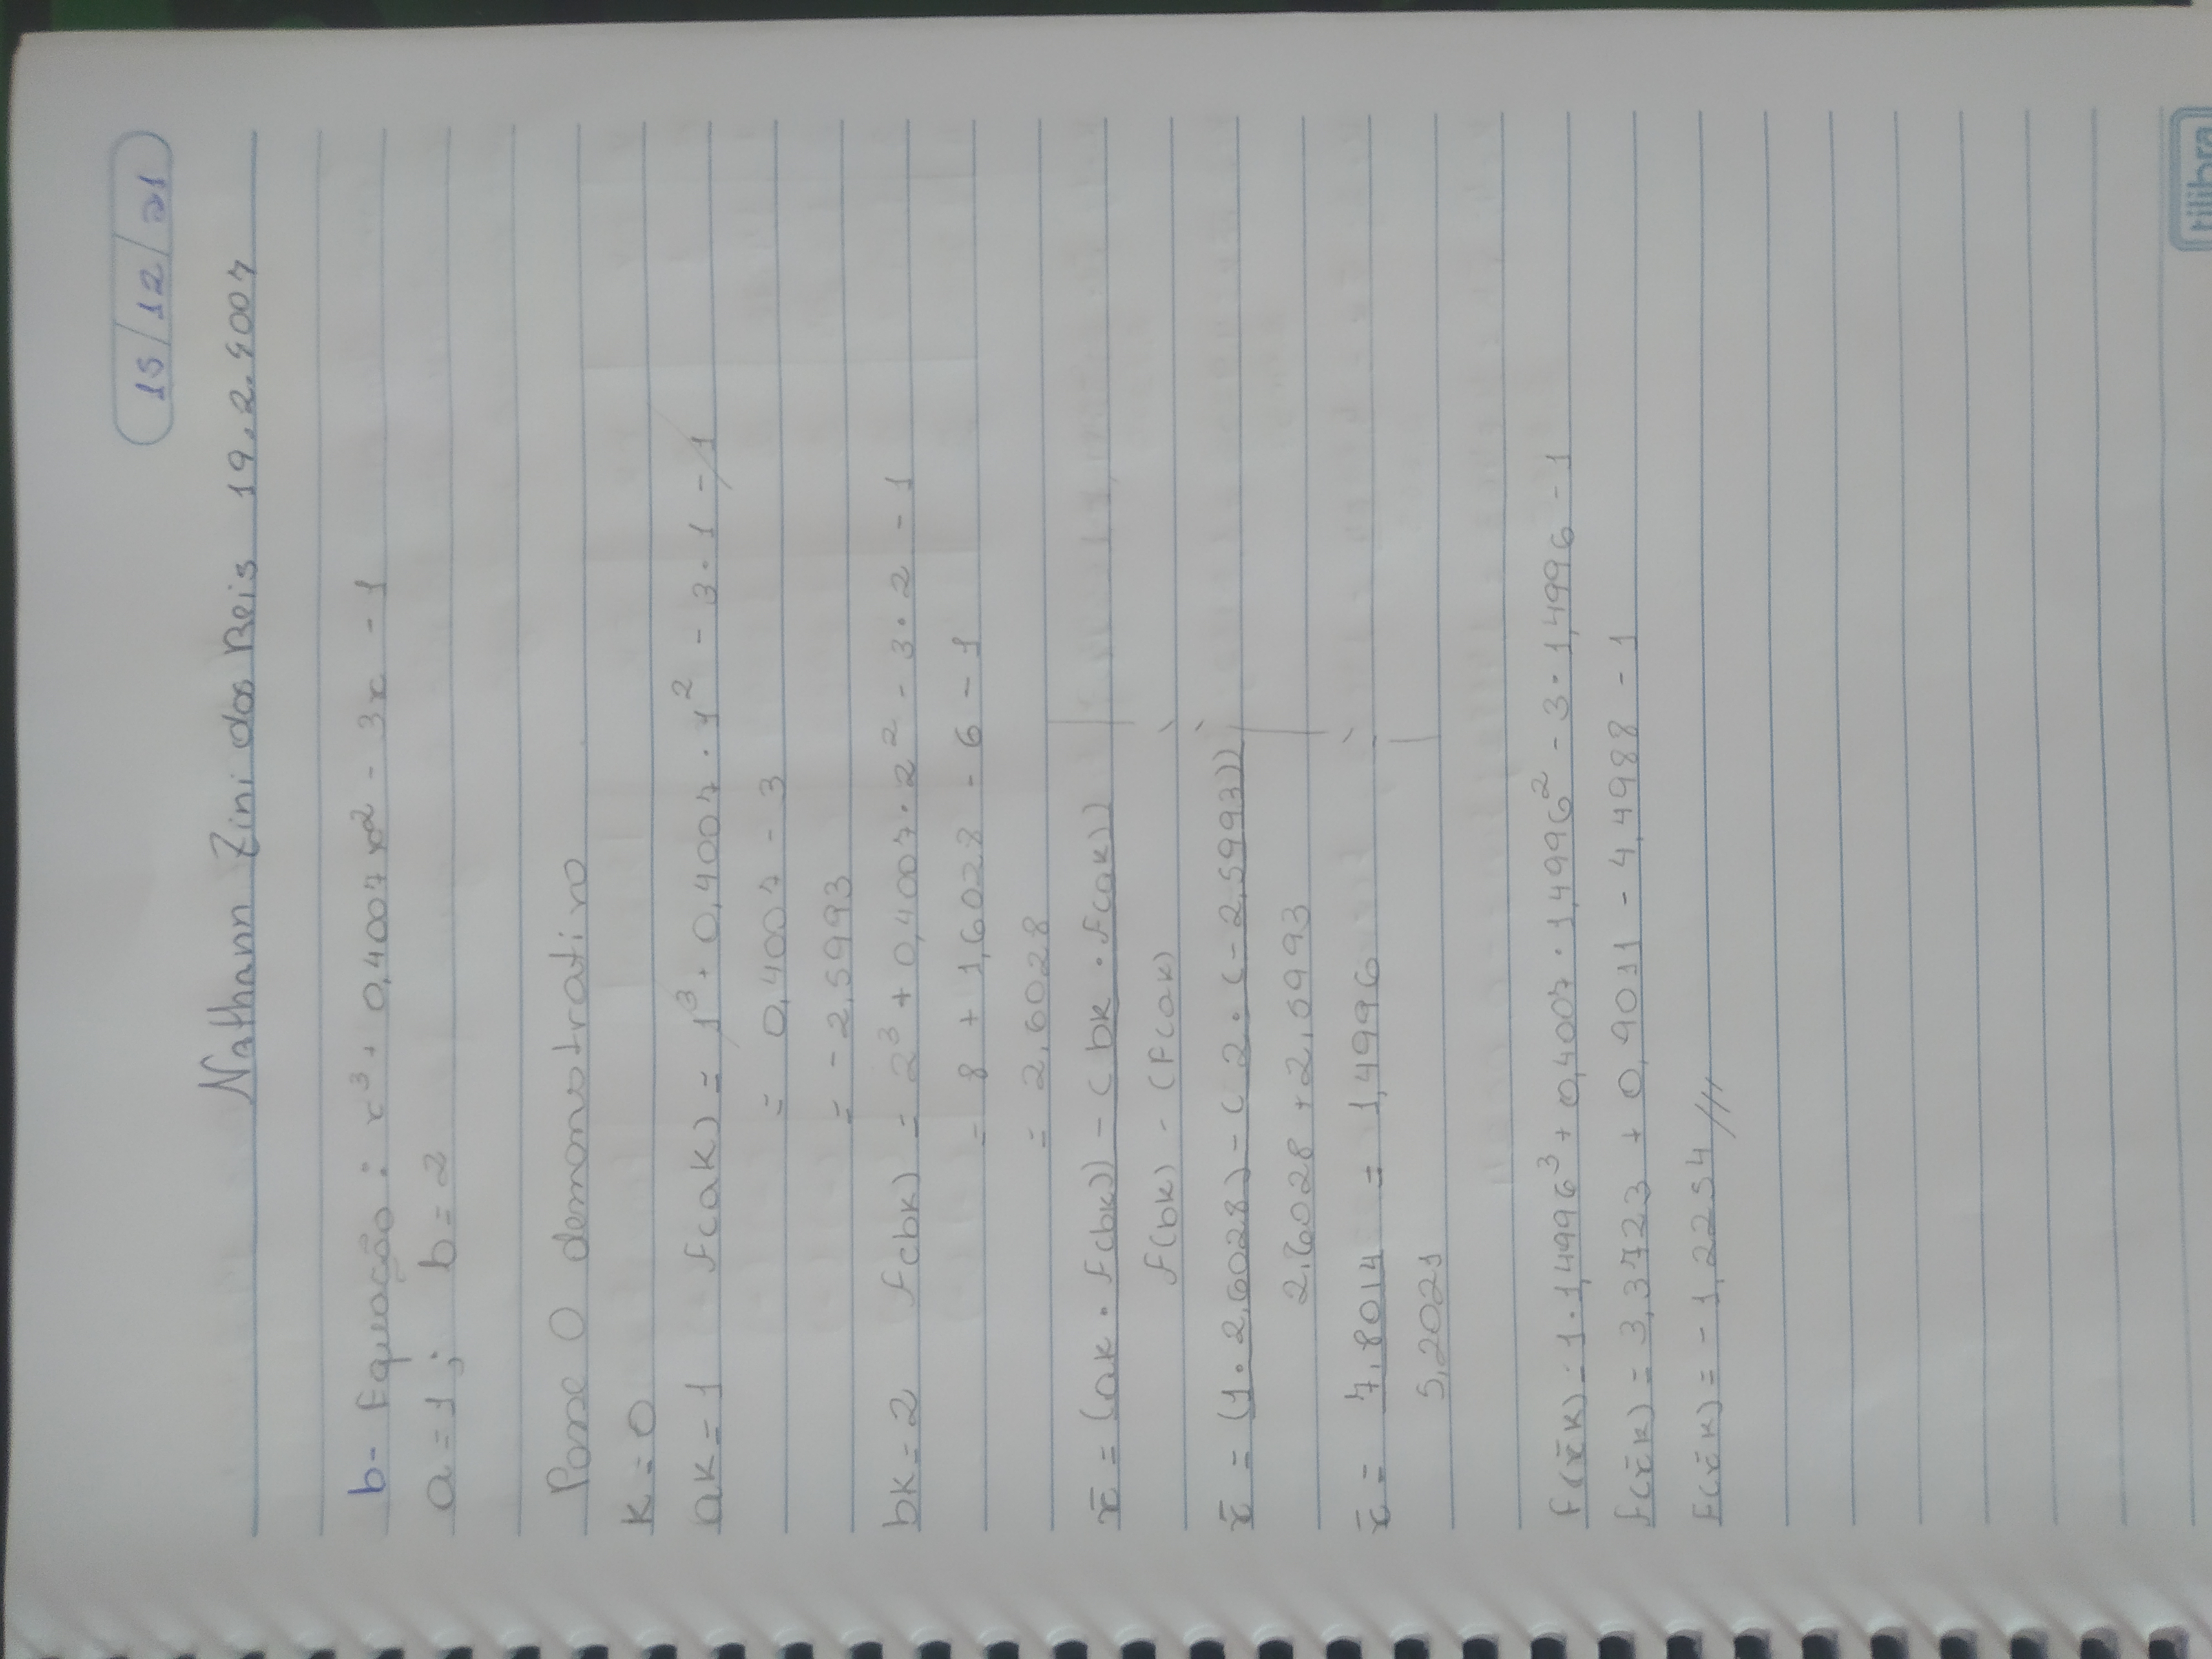 15/12/21
Nathann Zini dos Reis 19.2.4007
b- Equação: x³ + 0,4007x² - 3x - 1
a=1; b=2
Passe 0 demonstrativo
k=0
ak=1 f(ak) = 1³ + 0,4007 · 1² - 3·1 - 1
= 0,4007 - 3
= -2,5993
bk=2 f(bk) = 2³ + 0,4007·2² - 3·2 - 1
= 8 + 1,6028 - 6 - 1
= 2,6028
x̄ = (ak · f(bk)) - (bk · f(ak))
f(bk) - (f(ak)
x̄ = (1·2,6028) - (2·(-2,5993))
2,6028 + 2,5993
x̄ = 7,8014 = 1,4996
5,2021
f(x̄k) = 1·1,4996³ + 0,4007·1,4996² - 3·1,4996 - 1
f(x̄k) = 3,3723 + 0,9011 - 4,4988 - 1
f(x̄k) = -1,2254 ///
tilibra